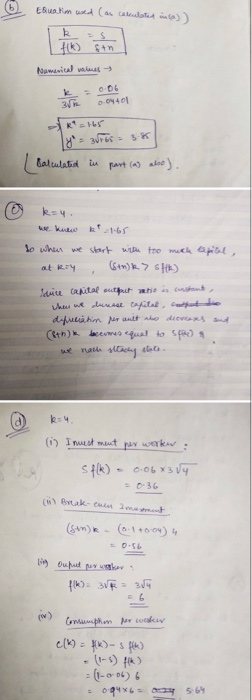 (b) Equation used (as calculated in (a))
k / f(k) = s / δ+n
Numerical values →
k / 3√k = 0.06 / 0.04+0.1
⇒ k* = 1.65
y* = 3√1.65 = 3.85
(Calculated in part (a) also).
(c) k=4.
we know k* = 1.65
So when we start with too much capital,
at k=4, (δ+n)k > sf(k)
Since capital output ratio is constant,
when we decrease capital,
depreciation per unit also decreases and
(δ+n)k becomes equal to sf(k) &
we reach steady state.
(d) k=4.
(i) Investment per worker :
sf(k) = 0.06 × 3√4
= 0.36
(ii) Break-even Investment
(δ+n)k = (0.1+0.04) 4
= 0.56
(iii) Output per worker :
f(k) = 3√k = 3√4
= 6
(iv) Consumption per worker
c(k) = f(k) - s f(k)
= (1-s) f(k)
= (1-0.06) 6
= 0.94×6 = 5.64